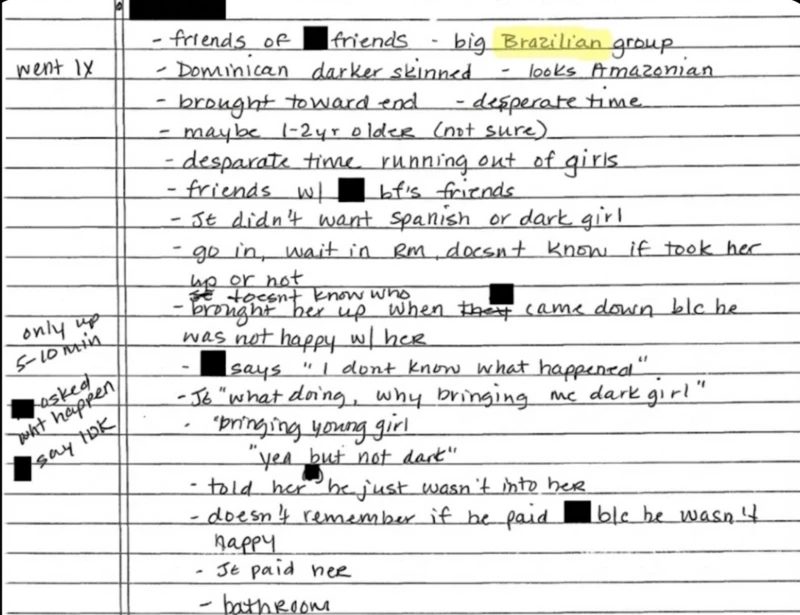 - friends of friends - big Brazilian group
went 1x
- Dominican darker skinned - looks Amazonian
- brought toward end - desperate time
- maybe 1-2yr older (not sure)
- desparate time running out of girls
- friends w/ bf's friends
- JE didn't want Spanish or dark girl
- go in, wait in RM, doesnt know if took her
up or not
JE doesnt know who
- brought her up when they came down b/c he
was not happy w/ her
only up
5-10 min
- says "I dont know what happened"
asked
wht happen
- JE "what doing, why bringing me dark girl"
say IDK
- "bringing young girl
"yea but not dark"
- told her he just wasn't into her
- doesn't remember if he paid b/c he wasn't
happy
- JE paid her
- bathroom